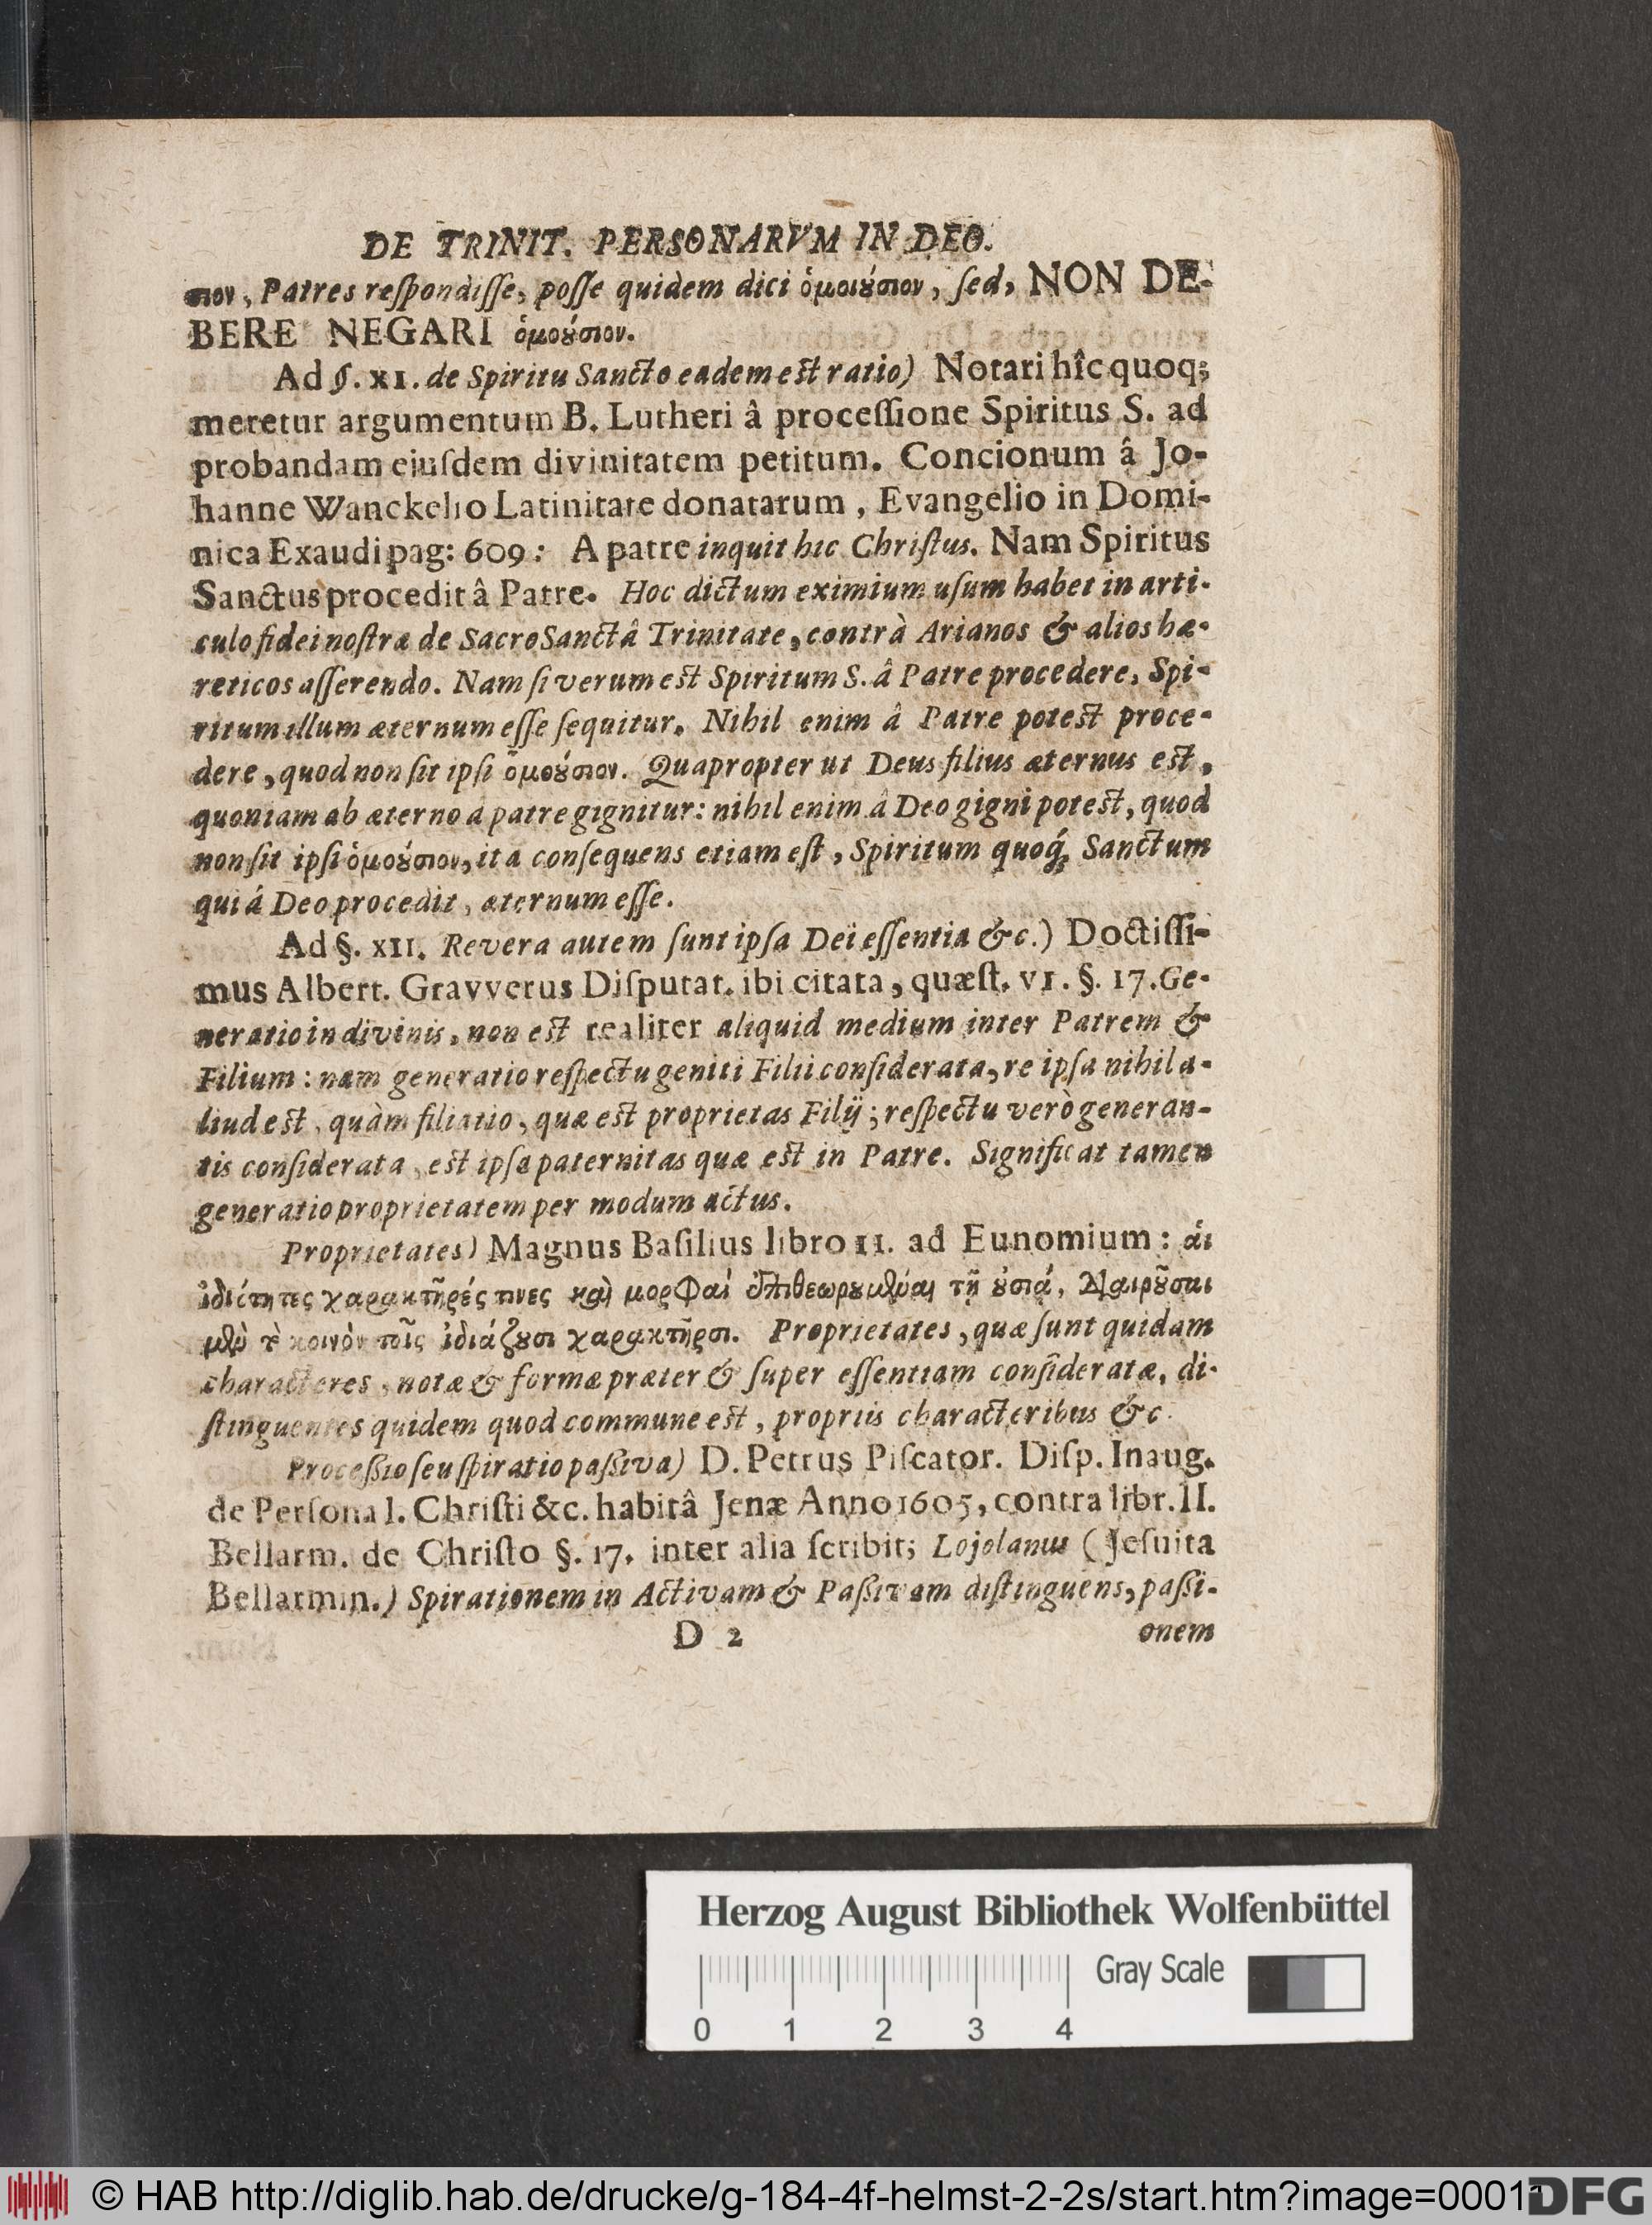 DE TRINIT. PERSONARVM IN DEO.
σιον, Patres reſpondiſſe, poſſe quidem dici ὁμοιούσιον, ſed, NON DE-
BERE NEGARI ὁμοούσιον.
Ad §. XI. de Spiritu Sancto eadem est ratio) Notari hîc quoq;
meretur argumentum B. Lutheri â proceſſione Spiritus S. ad
probandam ejuſdem divinitatem petitum. Concionum â Jo-
hanne Wanckelio Latinitate donatarum, Evangelio in Domi-
nica Exaudi pag: 609: A patre inquit hic Chriſtus. Nam Spiritus
Sanctus procedit â Patre. Hoc dictum eximium uſum habet in arti-
culo fidei noſtræ de SacroSanctâ Trinitate, contrà Arianos & alios hæ-
reticos aſſerendo. Nam ſi verum est Spiritum S. â Patre procedere, Spi-
ritum illum æternum eſſe ſequitur. Nihil enim â Patre potest proce-
dere, quod non ſit ipſi ὁμούσιον. Quapropter ut Deus filius æternus est,
quoniam ab æterno á patre gignitur: nihil enim â Deo gigni potest, quod
non ſit ipſi ὁμούσιον, ita conſequens etiam eſt, Spiritum quoq́; Sanctum
qui á Deo procedit, æternum eſſe.
Ad §. XII. Revera autem ſunt ipſa Dei eſſentia &c.) Doctiſſi-
mus Albert. Gravverus Diſputat. ibi citata, quæſt. VI. §. 17. Ge-
neratio in divinis, non est realiter aliquid medium inter Patrem &
Filium: nam generatio reſpectu geniti Filii conſiderata, re ipſa nihil a-
liud est, quàm filiatio, quæ est proprietas Filij; reſpectu verò generan-
tis conſiderata, est ipſa paternitas quæ est in Patre. Significat tamen
generatio proprietatem per modum actus.
Proprietates) Magnus Baſilius libro II. ad Eunomium: ἁι
ἰδιότητες χαρακτῆρές τινες καὶ μορφαί ἐπιθεωρουμέναι τῇ οὐσιᾴ, διαιροῦσαι
μὲν τὸ κοινὸν τοῖς ἰδιάζουσι χαρακτῆρσι. Proprietates, quæ ſunt quidam
characteres, notæ & formæ præter & ſuper eſſentiam conſideratæ, di-
ſtinguentes quidem quod commune est, propriis characteribus &c.
Proceßio ſeu ſpiratio paßiva) D. Petrus Piſcator. Diſp. Inaug.
de Perſona I. Chriſti &c. habitâ Jenæ Anno 1605, contra libr. II.
Bellarm. de Chriſto §. 17. inter alia ſcribit; Lojolanus (Jeſuita
Bellarmin.) Spirationem in Activam & Paßivam diſtinguens, paßi-
D 2 onem
Herzog August Bibliothek Wolfenbüttel
Gray Scale
0 1 2 3 4
© HAB http://diglib.hab.de/drucke/g-184-4f-helmst-2-2s/start.htm?image=00011
DFG